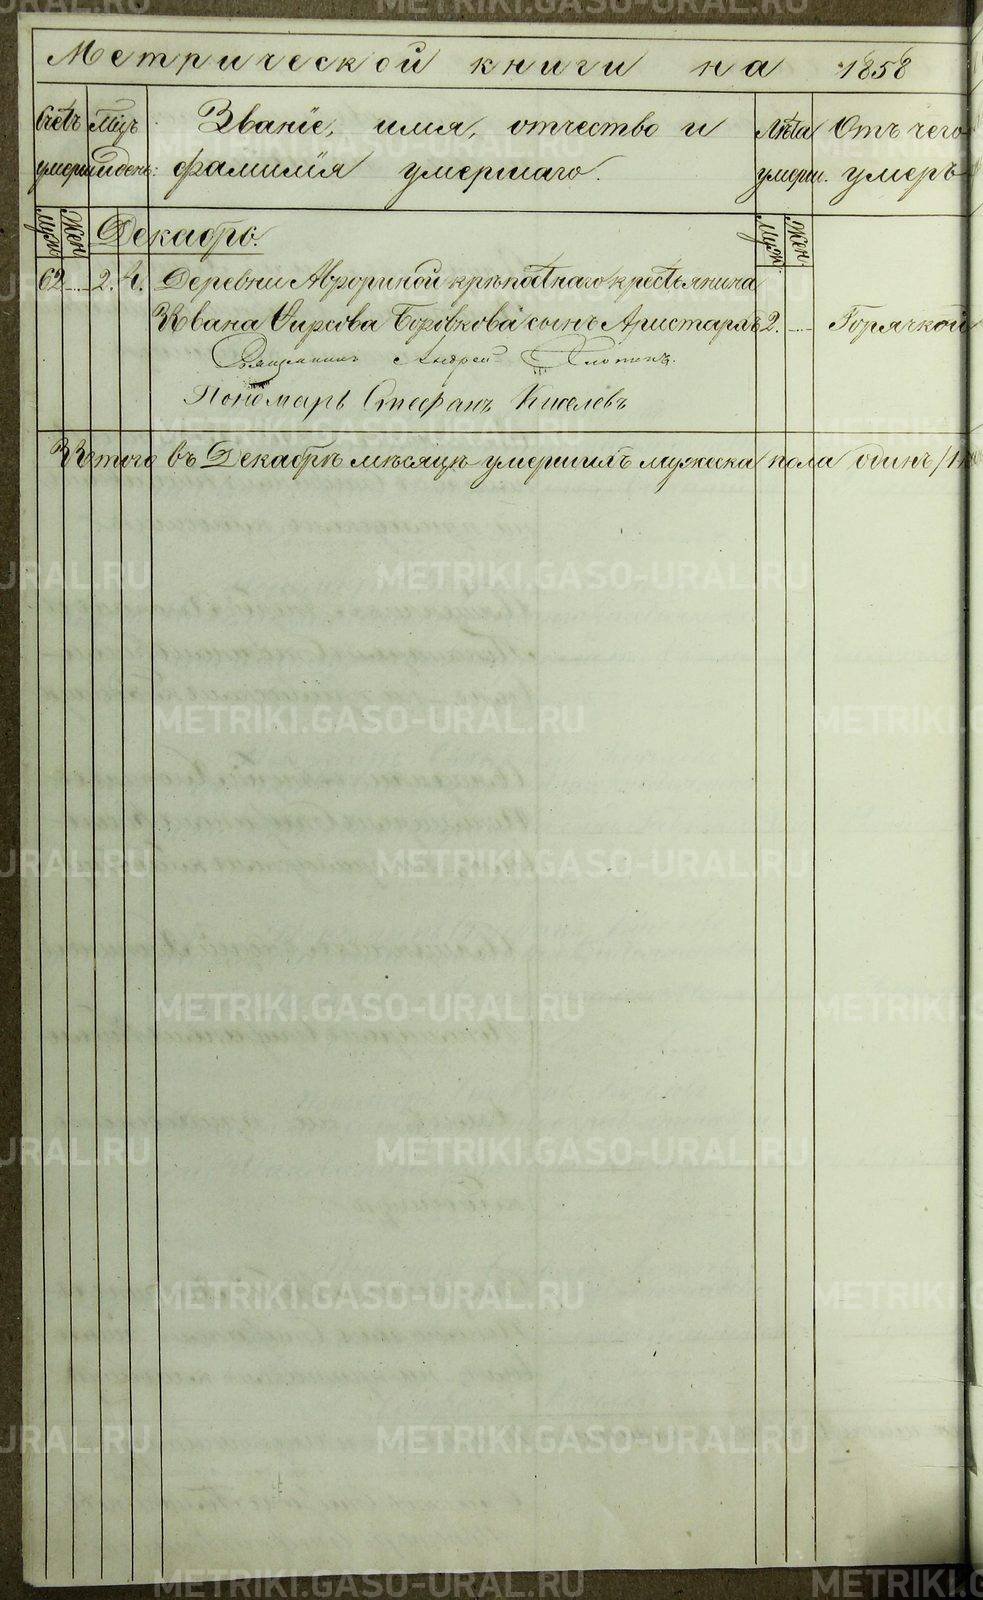 Метрической книги на 1858
Счетъ умерш.
Мцъ и день:
Званіе, имя, отчество и
фамилія умершаго.
Лѣта умерш.
Отъ чего
умеръ
Муж. Жен.
Декабрь.
Муж. Жен.
62 2. 4. Деревни Аврориной крѣпостнаго крестьянина
Ивана Фирсова Боровкова сынъ Аристархъ 2. Горячкой
Священникъ Андрей
Пономарь Стефанъ Киселевъ
Итого въ Декабрѣ мѣсяцѣ умершихъ мужеска пола одинъ /1/
METRIKI.GASO-URAL.RU